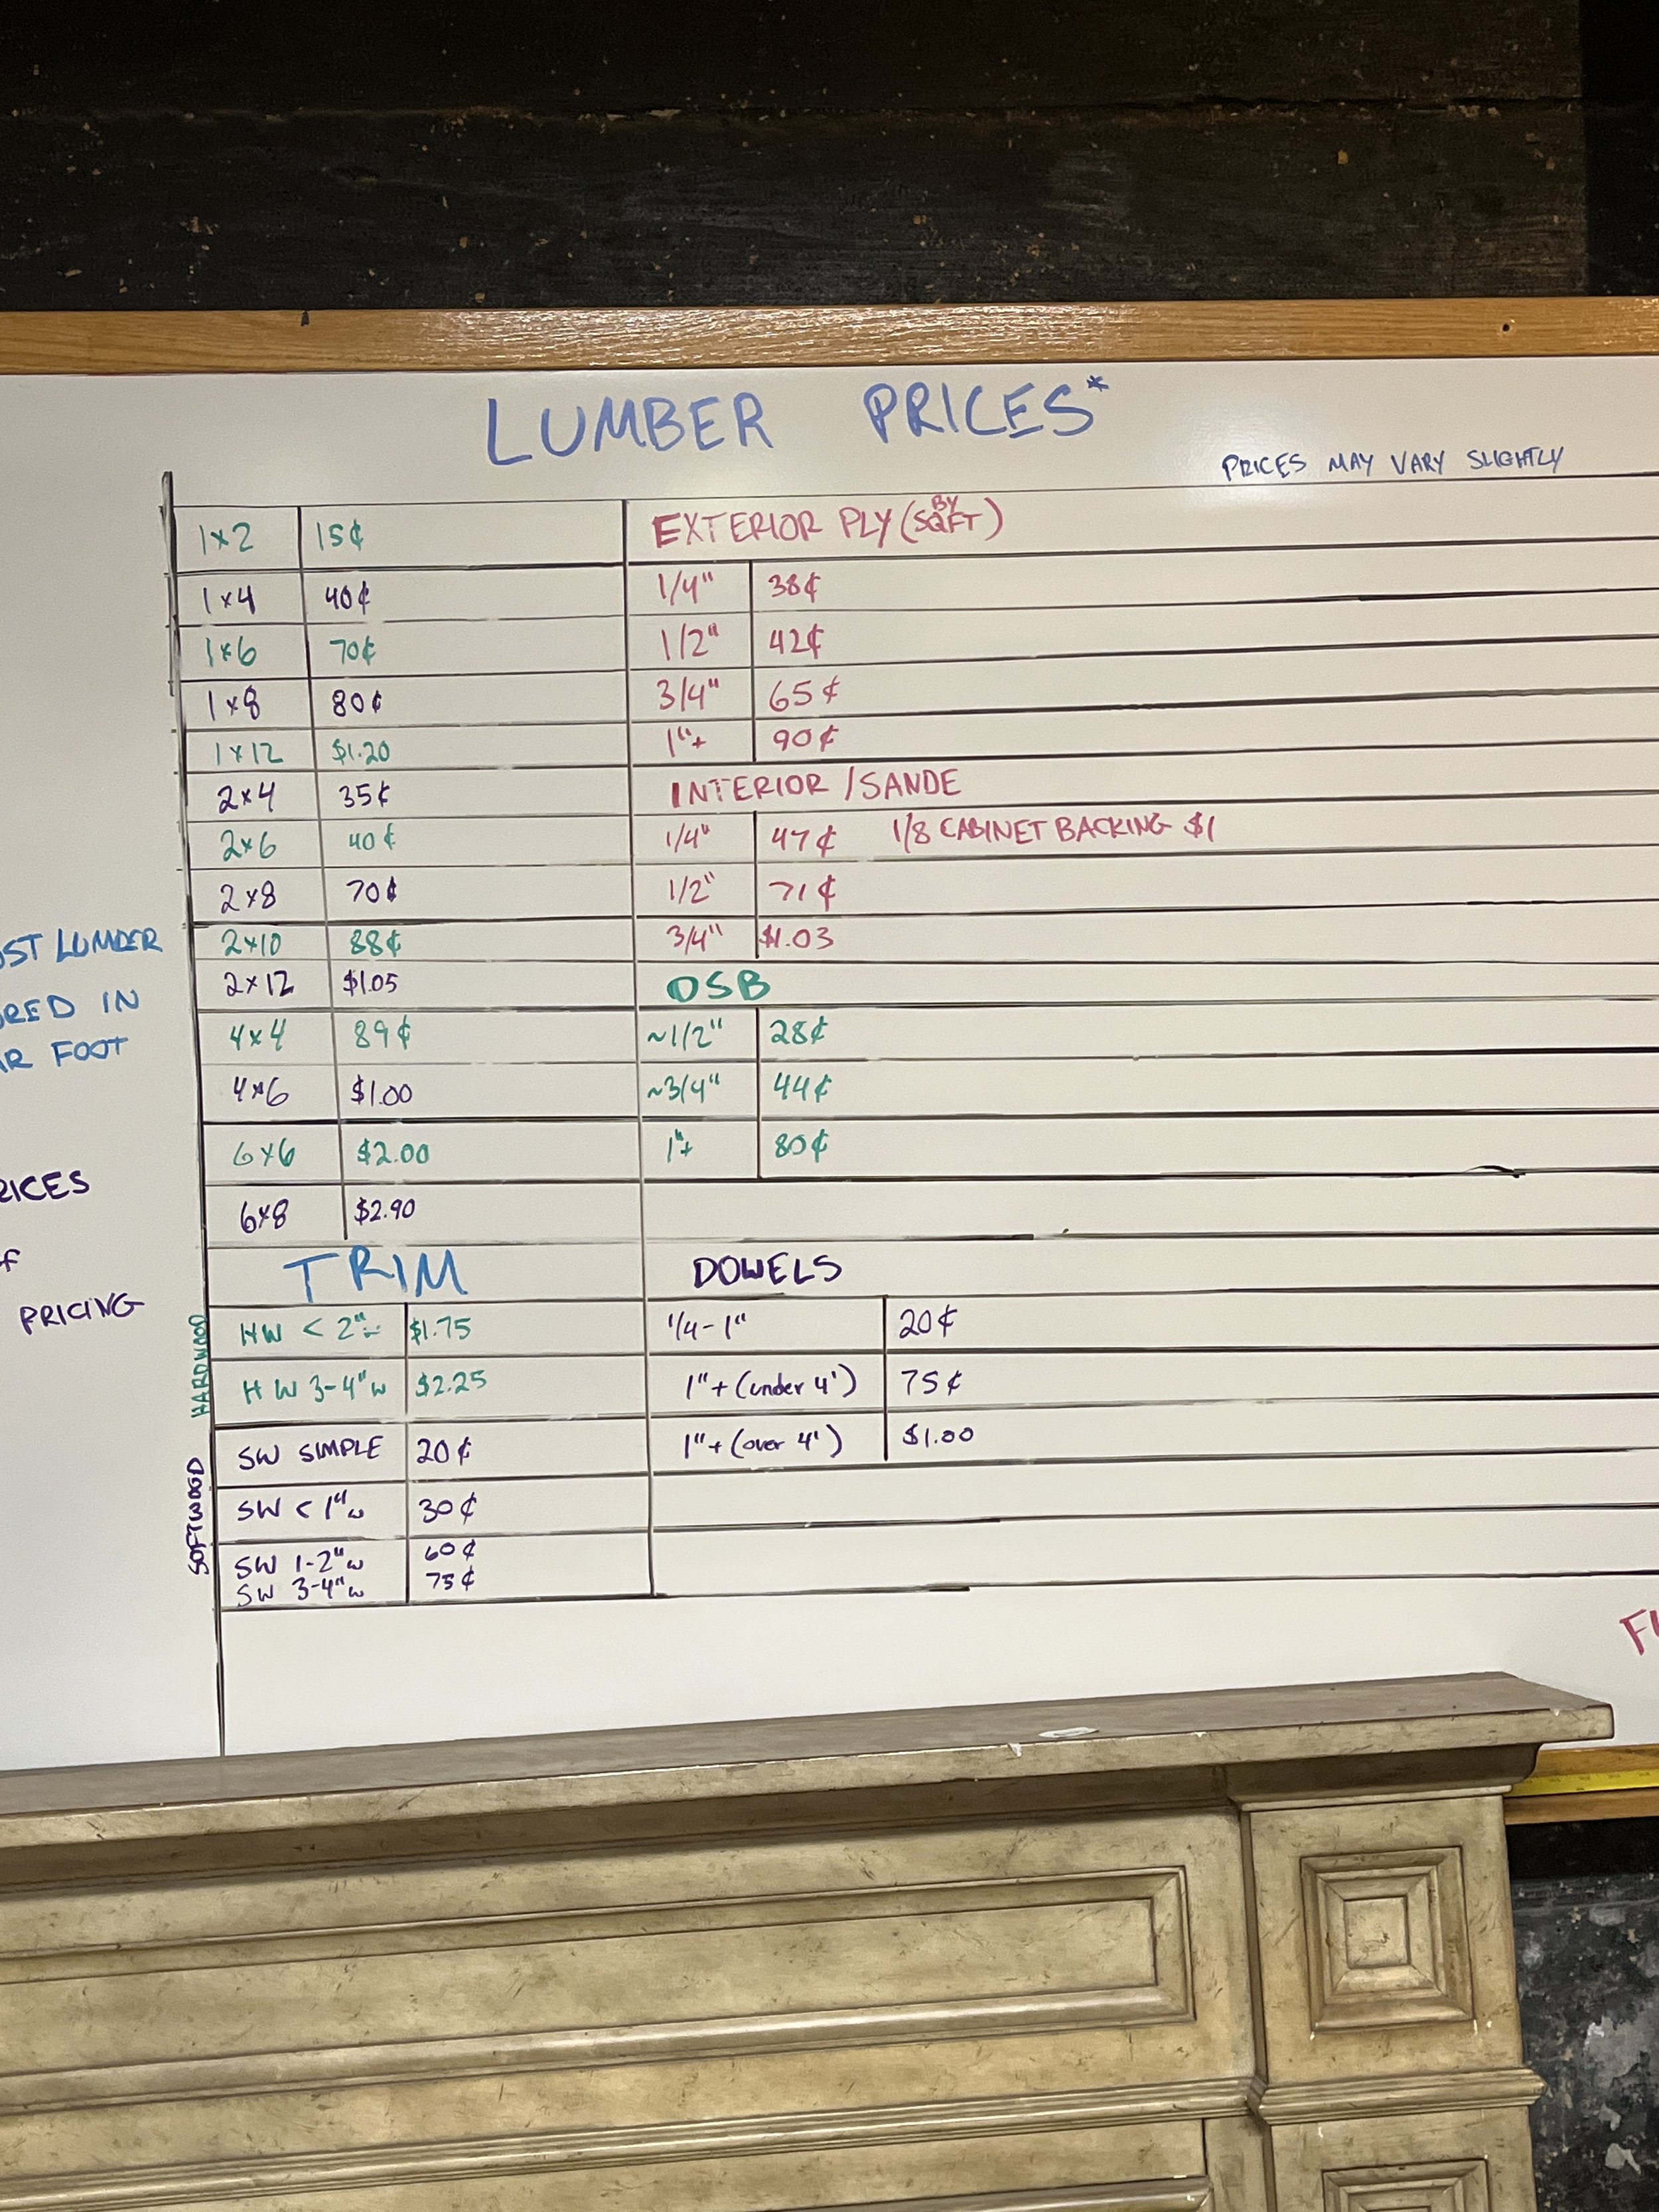 LUMBER PRICES*
PRICES MAY VARY SLIGHTLY
1x2 15¢
1x4 40¢
1x6 70¢
1x8 80¢
1x12 $1.20
2x4 35¢
2x6 40¢
2x8 70¢
2x10 88¢
2x12 $1.05
4x4 89¢
4x6 $1.00
6x6 $2.00
6x8 $2.90
EXTERIOR PLY (BY SQFT)
1/4" 38¢
1/2" 42¢
3/4" 65¢
1"+ 90¢
INTERIOR / SANDE
1/4" 47¢ 1/8 CABINET BACKING $1
1/2" 71¢
3/4" $1.03
OSB
~1/2" 28¢
~3/4" 44¢
1"+ 80¢
TRIM
HARDWOOD
HW < 2" $1.75
HW 3-4"w $2.25
SOFTWOOD
SW SIMPLE 20¢
SW < 1"w 30¢
SW 1-2"w 60¢
SW 3-4"w 75¢
DOWELS
1/4-1" 20¢
1"+ (under 4') 75¢
1"+ (over 4') $1.00
LUMBER
IN
FOOT
PRICING